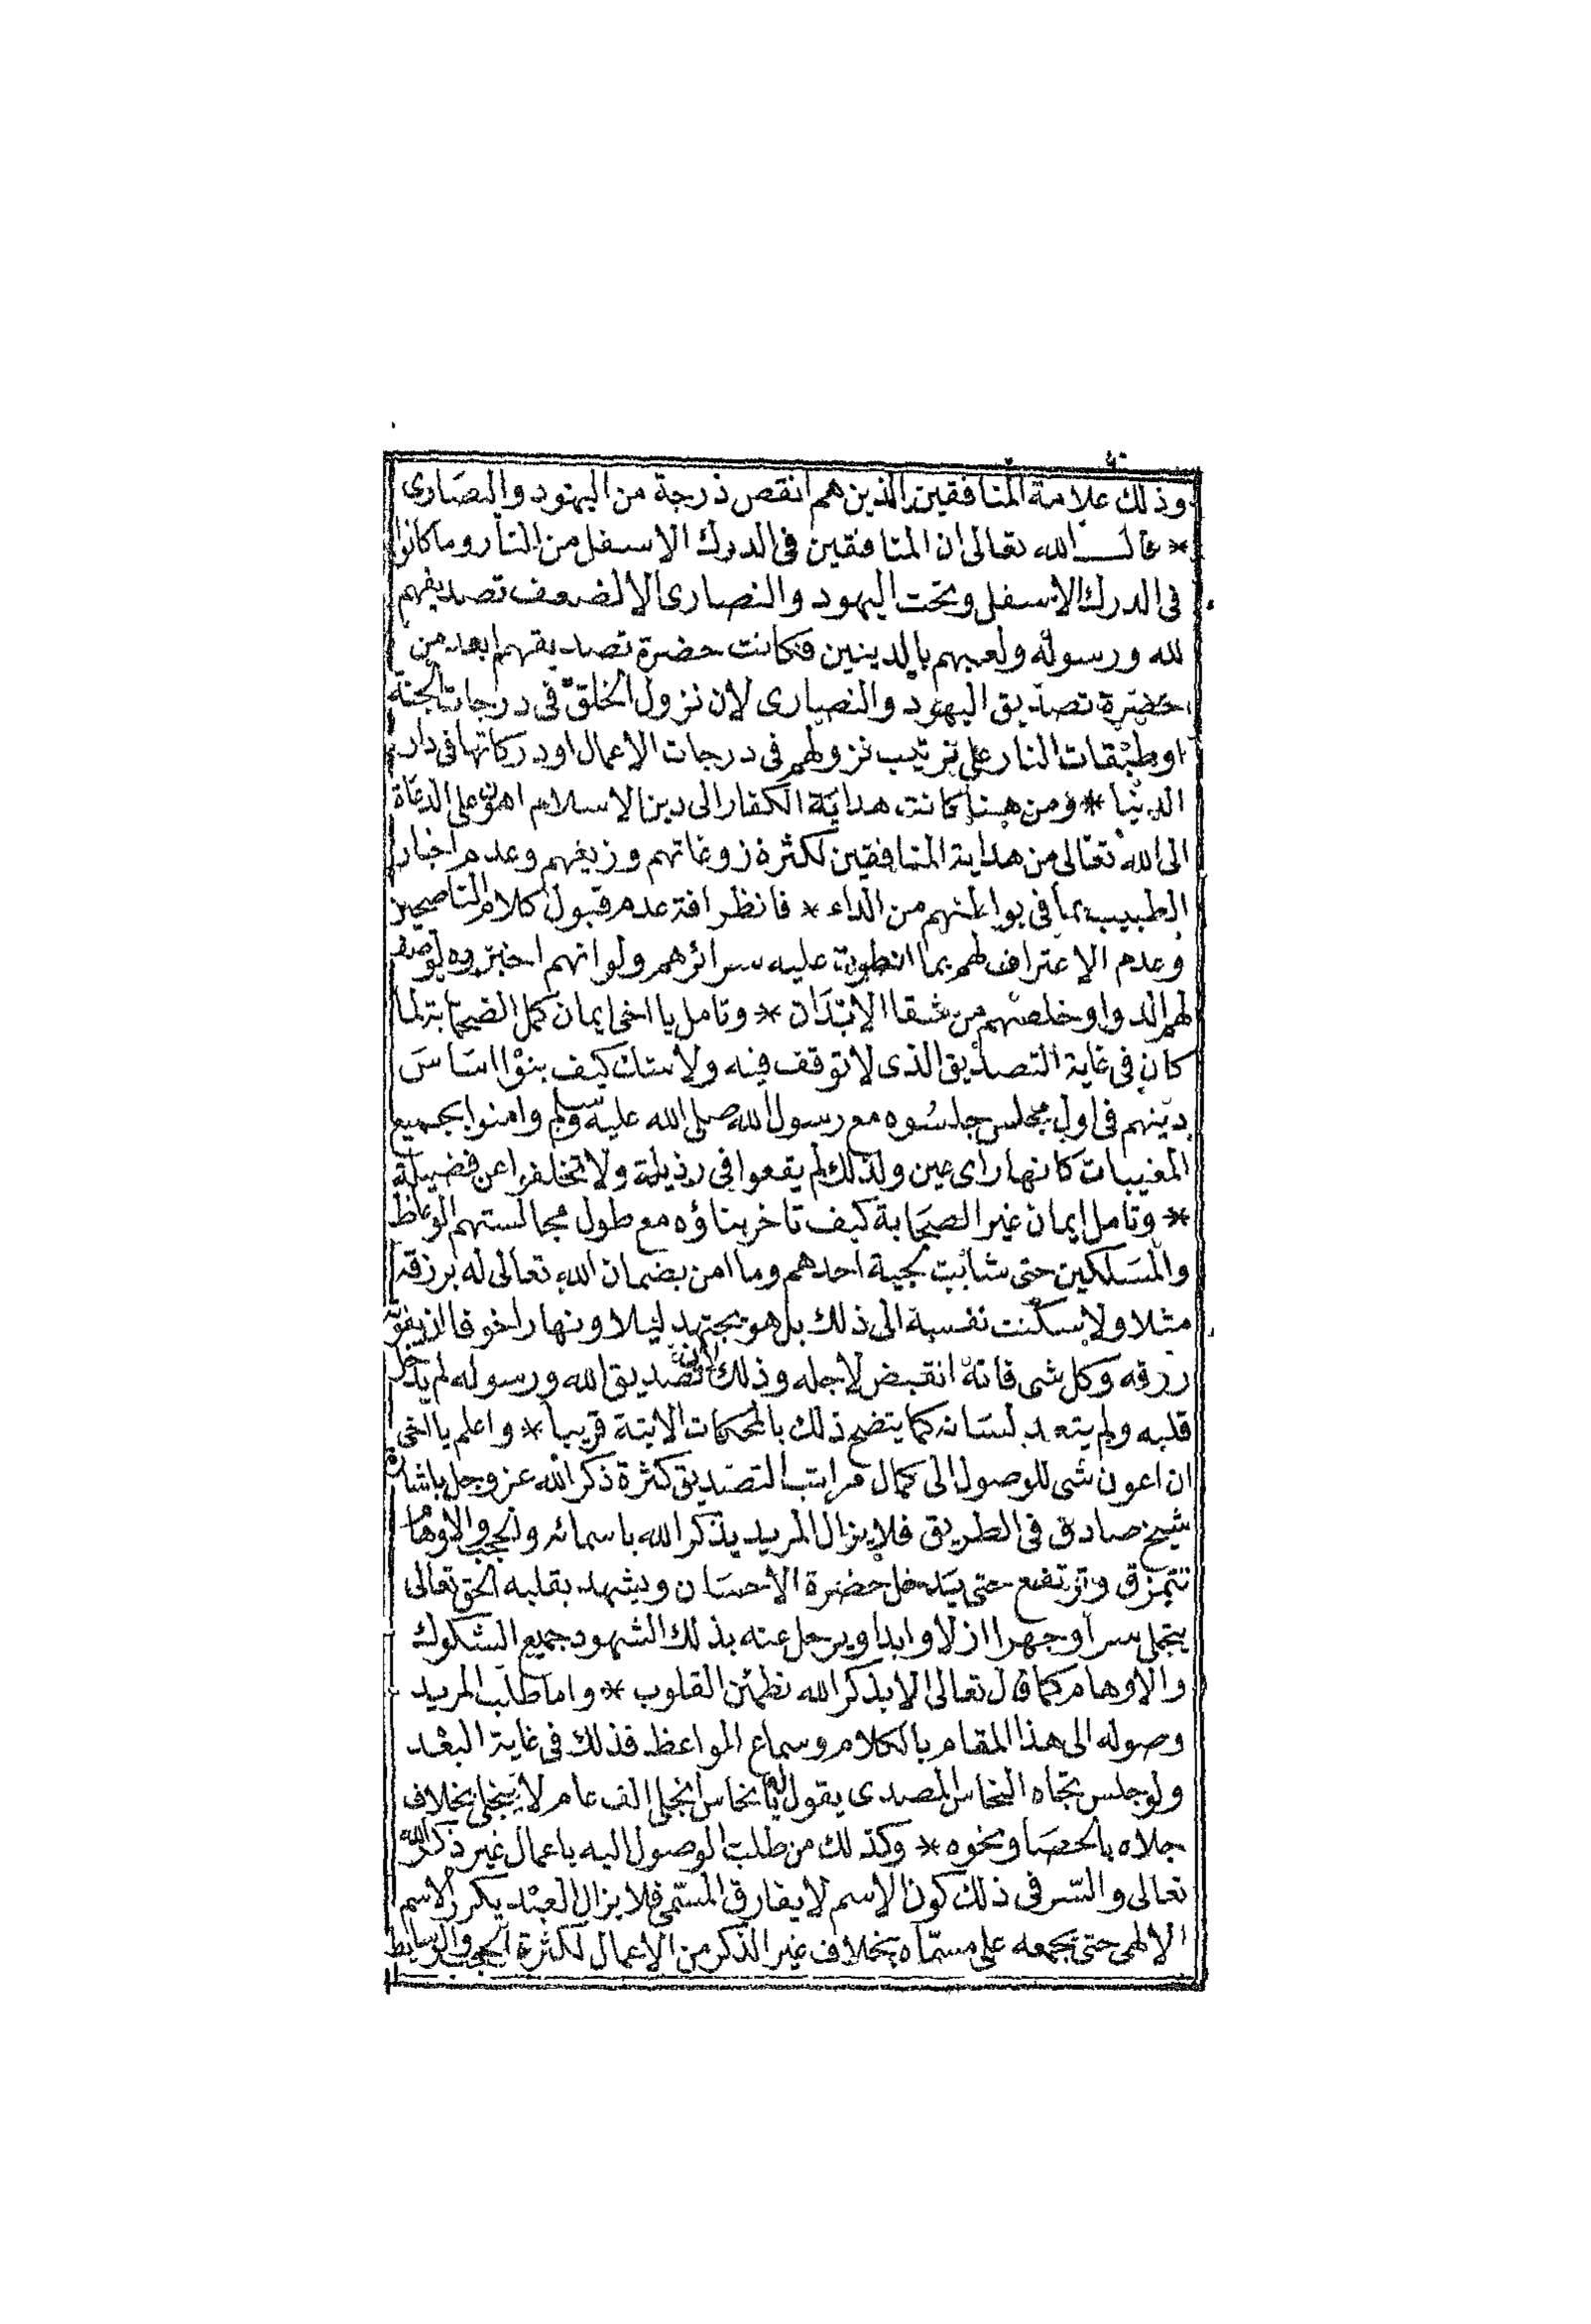 وذلك علامة المنافقين الذين هم انقص درجة من اليهود والنصارى
* قال الله تعالى ان المنافقين فى الدرك الاسفل من النار وما كانوا
فى الدرك الاسفل وتحت اليهود والنصارى الا لضعف تصديقهم
لله ورسوله ولعبهم بالدينين فكانت حضرة تصديقهم ابعد من
حضرة تصديق اليهود والنصارى لان نزول الخلق فى درجات الجنة
او طبقات النار على ترتيب نزولهم فى درجات الاعمال او دركاتها فى دار
الدنيا * ومن هنا كانت هداية الكفار الى دين الاسلام اهون على الدعاة
الى الله تعالى من هداية المنافقين لكثرة زوغاتهم وزيغهم وعدم اخبار
الطبيب بما فى بواطنهم من الداء * فانظر افة عدم قبول كلام الناصحين
وعدم الاعتراف لهم بما انطوت عليه سرائرهم ولو انهم اخبروه لوصف
لهم الدوا وخلصهم من شقا الابدان * وتامل يا اخى ايمان كمل الصحابة لما
كان فى غاية التصديق الذى لا توقف فيه ولا شك كيف بنوا اساس
دينهم فى اول مجلس جلسوه مع رسول الله صلى الله عليه وسلم وامنوا بجميع
المغيبات كانها راى عين ولذلك لم يقعوا فى رذيلة ولا تخلفوا عن فضيلة
* وتامل ايمان غير الصحابة كيف تاخر بناؤه مع طول مجالستهم الوعاظ
والمسلكين حتى شابت لحية احدهم وما امن بضمان الله تعالى له برزقه
مثلا ولا سكنت نفسه الى ذلك بل هو يجتهد ليلا ونهارا خوفا ان يفوته
رزقه وكل شى فاته انقبض لاجله وذلك لان تصديق الله ورسوله لم يدخل
قلبه ولم يتعد لسانه كما يتضح ذلك بالمحكات الاتية قريبا * واعلم يا اخى
ان اعون شى للوصول الى كمال مراتب التصديق كثرة ذكر الله عز وجل باشارة
شيخ صادق فى الطريق فلا يزال المريد يذكر الله باسمائه والحجب والاوهام
تتمزق وترتفع حتى يدخل حضرة الاحسان ويشهد بقلبه الحق تعالى
يتجلى سرا وجهرا ازلا وابدا ويرحل عنه بذلك الشهود جميع الشكوك
والاوهام كما قال تعالى الا بذكر الله تطمئن القلوب * واما طلب المريد
وصوله الى هذا المقام بالكلام وسماع المواعظ فذلك فى غاية البعد
ولو جلس تجاه النحاس المصدى يقول له يا نحاس انجلى الف عام لا ينجلى بخلاف
جلاه بالحصا ونحوه * وكذلك من طلب الوصول اليه باعمال غير ذكر الله
تعالى والسر فى ذلك كون الاسم لا يفارق المسمى فلا يزال العبد يكرر الاسم
الالهى حتى يجمعه على مسماه بخلاف غير الذكر من الاعمال لكثرة الحجب والوسايط